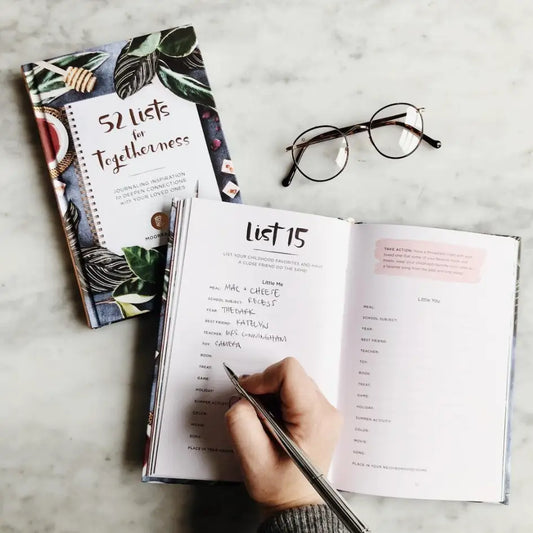 52 Lists
for
Togetherness
JOURNALING INSPIRATION
TO DEEPEN CONNECTIONS
WITH YOUR LOVED ONES
List 15
LIST YOUR CHILDHOOD FAVORITES AND HAVE
A CLOSE FRIEND DO THE SAME
Little Me
MEAL: MAC + CHEESE
SCHOOL SUBJECT: RECESS
FEAR: THE DARK
BEST FRIEND: KATELYN
TEACHER: MRS. CUNNINGHAM
TOY: CAMERA
BOOK:
TREAT:
GAME:
HOLIDAY:
SUMMER ACTIVITY:
COLOR:
MOVIE:
SONG:
PLACE IN YOUR NEIGHBORHOOD
TAKE ACTION:
Little You
MEAL:
SCHOOL SUBJECT:
FEAR:
BEST FRIEND:
TEACHER:
TOY:
BOOK:
TREAT:
GAME:
HOLIDAY:
SUMMER ACTIVITY:
COLOR:
MOVIE:
SONG:
PLACE IN YOUR NEIGHBORHOOD/HOME: